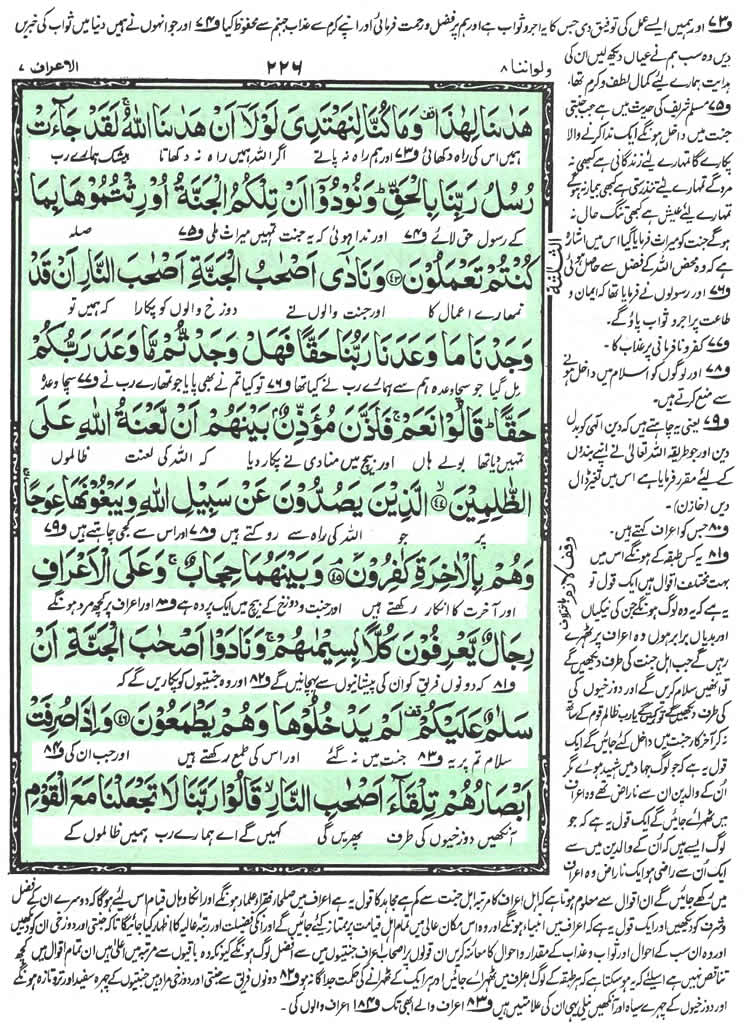 و۷۳ اور ہمیں ایسے عمل کی توفیق دی جس کا یہ اجر و ثواب ہے اور ہم پر فضل و رحمت فرمائی اور اپنے کرم سے عذاب جہنم سے محفوظ کیا و۷۴ اور جو انہوں نے ہمیں دنیا میں ثواب کی خبریں
دیں وہ سب ہم نے عیاں دیکھ لیں ان کی
ہدایت ہمارے لئے کمال لطف و کرم تھا۔
و۷۵ مسلم شریف کی حدیث میں ہے جب جنتی
جنت میں داخل ہونگے ایک ندا کرنے والا
پکارے گا تمہارے لئے زندگانی ہے کبھی نہ
مرو گے تمہارے لئے تندرستی ہے کبھی بیمار نہ ہوگے
تمہارے لئے عیش ہے کبھی تنگ حال نہ
ہوگے جنت کو میراث فرمایا گیا اس میں اشارہ
ہے کہ وہ محض اللہ کے فضل سے حاصل ہوئی
و۷۶ اور رسولوں نے فرمایا تھا کہ ایمان و
طاعت پر اجر و ثواب پاؤ گے۔
و۷۷ کفر و نافرمانی پر عذاب کا۔
و۷۸ اور لوگوں کو اسلام میں داخل ہونے
سے منع کرتے ہیں۔
و۷۹ یعنی یہ چاہتے ہیں کہ دین الٰہی کو بدل
دیں اور جو طریقہ اللہ تعالیٰ نے اپنے بندوں
کے لئے مقرر فرمایا ہے اس میں تغیر ڈال
دیں (خازن)۔
و۸۰ جس کو اعراف کہتے ہیں۔
و۸۱ یہ کس طبقہ کے ہونگے اس میں
بہت مختلف اقوال ہیں ایک قول تو
یہ ہے کہ یہ وہ لوگ ہونگے جن کی نیکیاں
اور بدیاں برابر ہوں وہ اعراف پر ٹھہرے
رہیں گے جب اہل جنت کی طرف دیکھیں گے
تو انہیں سلام کریں گے اور دوزخیوں کی
طرف دیکھیں گے تو کہیں گے یارب ظالم قوم کے ساتھ
نہ کر آخر کار جنت میں داخل کئے جائیں گے ایک
قول یہ ہے کہ جو لوگ جہاد میں شہید ہوئے مگر
اُن کے والدین ان سے ناراض تھے وہ اعراف
میں ٹھہرائے جائیں گے ایک قول یہ ہے کہ جو
لوگ ایسے ہیں کہ ان کے والدین میں سے
ایک اُن سے راضی ہو ایک ناراض وہ اعراف
ولواننا ۸
۲۲۶
الاعراف ۷
هَدٰىنَا لِهٰذَا وَمَا كُنَّا لِنَهْتَدِیَ لَوْلَاۤ اَنْ هَدٰىنَا اللّٰهُ ۚ لَقَدْ جَآءَتْ
ہمیں اس کی راہ دکھائی و۷۳ اور ہم راہ نہ پاتے اگر اللہ ہمیں راہ نہ دکھاتا بیشک ہمارے رب
رُسُلُ رَبِّنَا بِالْحَقِّ ؕ وَنُوْدُوْۤا اَنْ تِلْكُمُ الْجَنَّةُ اُوْرِثْتُمُوْهَا بِمَا
کے رسول حق لائے و۷۴ اور ندا ہوئی کہ یہ جنت تمہیں میراث ملی و۷۵ صلہ
كُنْتُمْ تَعْمَلُوْنَ ۝۴۳ وَنَادٰۤى اَصْحٰبُ الْجَنَّةِ اَصْحٰبَ النَّارِ اَنْ قَدْ
تمھارے اعمال کا اور جنت والوں نے دوزخ والوں کو پکارا کہ ہمیں تو
وَجَدْنَا مَا وَعَدَنَا رَبُّنَا حَقًّا فَهَلْ وَجَدْتُّمْ مَّا وَعَدَ رَبُّكُمْ
مل گیا جو سچا وعدہ ہم سے ہمارے رب نے کیا تھا و۷۶ تو کیا تم نے بھی پایا جو تمھارے رب نے و۷۷ سچا وعدہ
حَقًّا ؕ قَالُوْا نَعَمْ ۚ فَاَذَّنَ مُؤَذِّنٌۢ بَیْنَهُمْ اَنْ لَّعْنَةُ اللّٰهِ عَلَى
تمہیں دیا تھا بولے ہاں اور بیچ میں منادی نے پکار دیا کہ اللہ کی لعنت ظالموں
الظّٰلِمِیْنَ ۝۴۴ الَّذِیْنَ یَصُدُّوْنَ عَنْ سَبِیْلِ اللّٰهِ وَیَبْغُوْنَهَا عِوَجًا ۚ
پر جو اللہ کی راہ سے روکتے ہیں و۷۸ اور اس سے کجی چاہتے ہیں و۷۹
وَهُمْ بِالْاٰخِرَةِ كٰفِرُوْنَ ۝۴۵ وَبَیْنَهُمَا حِجَابٌ ۚ وَعَلَى الْاَعْرَافِ
اور آخرت کا انکار رکھتے ہیں اور جنت و دوزخ کے بیچ میں ایک پردہ ہے و۸۰ اور اعراف پر کچھ مرد ہونگے
رِجَالٌ یَّعْرِفُوْنَ كُلًّۢا بِسِیْمٰىهُمْ ۚ وَنَادَوْا اَصْحٰبَ الْجَنَّةِ اَنْ
و۸۱ کہ دونوں فریق کو ان کی پیشانیوں سے پہچانیں گے و۸۲ اور وہ جنتیوں کو پکاریں گے کہ
سَلٰمٌ عَلَیْكُمْ لَمْ یَدْخُلُوْهَا وَهُمْ یَطْمَعُوْنَ ۝۴۶ وَاِذَا صُرِفَتْ
سلام تم پر یہ و۸۳ جنت میں نہ گئے اور اس کی طمع رکھتے ہیں اور جب ان کی و۸۴
اَبْصَارُهُمْ تِلْقَآءَ اَصْحٰبِ النَّارِ ۙ قَالُوْا رَبَّنَا لَا تَجْعَلْنَا مَعَ الْقَوْمِ
آنکھیں دوزخیوں کی طرف پھریں گی کہیں گے اے ہمارے رب ہمیں ظالموں کے
میں رکھے جائیں گے ان اقوال سے معلوم ہوتا ہے کہ اہل اعراف کا مرتبہ اہل جنت سے کم ہے مجاہد کا قول یہ ہے اعراف میں صلحا، فقہا، علما، ہونگے اور انکا وہاں قیام اس لئے ہوگا کہ دوسرے ان کے فضل
و شرف کو دیکھیں اور ایک قول یہ ہے کہ اعراف میں انبیاء ہونگے اور وہ اس مکان عالی میں تمام اہل قیامت پر ممتاز کئے جائیں گے اور انکی فضیلت اور رتبہ عالیہ کا اظہار کیا جائیگا تاکہ جنتی اور دوزخی ان کو دیکھیں
اور وہ ان سب کے احوال اور ثواب و عذاب کے مقدار و احوال کا معائنہ کریں ان قولوں پر اصحاب اعراف جنتیوں میں سے افضل لوگ ہونگے کیونکہ وہ باقیوں سے مرتبہ میں اعلیٰ ہیں ان تمام اقوال میں کچھ
تناقض نہیں ہے اسلئے کہ یہ ہوسکتا ہے کہ ہر طبقہ کے لوگ اعراف میں ٹھہرائے جائیں اور ہر ایک کے ٹھہرانے کی حکمت جداگانہ ہو و۸۲ دونوں فریق سے جنتی اور دوزخی مراد ہیں جنتیوں کے چہرے سفید اور تر و تازہ ہونگے
اور دوزخیوں کے چہرے سیاہ اور آنکھیں نیلی یہی ان کی علامتیں ہیں و۸۳ اعراف والے ابھی تک و۸۴ اعراف والوں کی۔